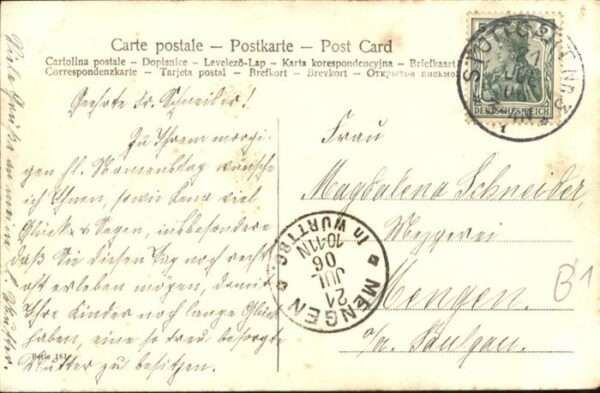 Carte postale – Postkarte – Post Card
Cartolina postale – Dopisnice – Levelező-Lap – Karta korespondencyjna – Briefkaart
Correspondenzkarte – Tarjeta postal – Brefkort – Brevkort – Открытое письмо
STUTTGART
DEUTSCHES REICH
Geehrte Fr. Schneider!
Zu Ihrem morgi-
gen hl. Namenstag wünsche
ich Ihnen, sowie Lena viel
Glück u. Segen, insbesondere
daß Sie diesen Tag noch recht
oft erleben mögen, damit
Ihre Kinder noch lange Glück
haben, eine so treu besorgte
Mutter zu besitzen.
Viele Grüße an meine Mutter.
Frau
Magdalena Schneider
Metzgerei
Mengen.
o/a. Saulgau.
MENGEN
in WÜRTTBG.
21
JUL
06
10-11N
B1